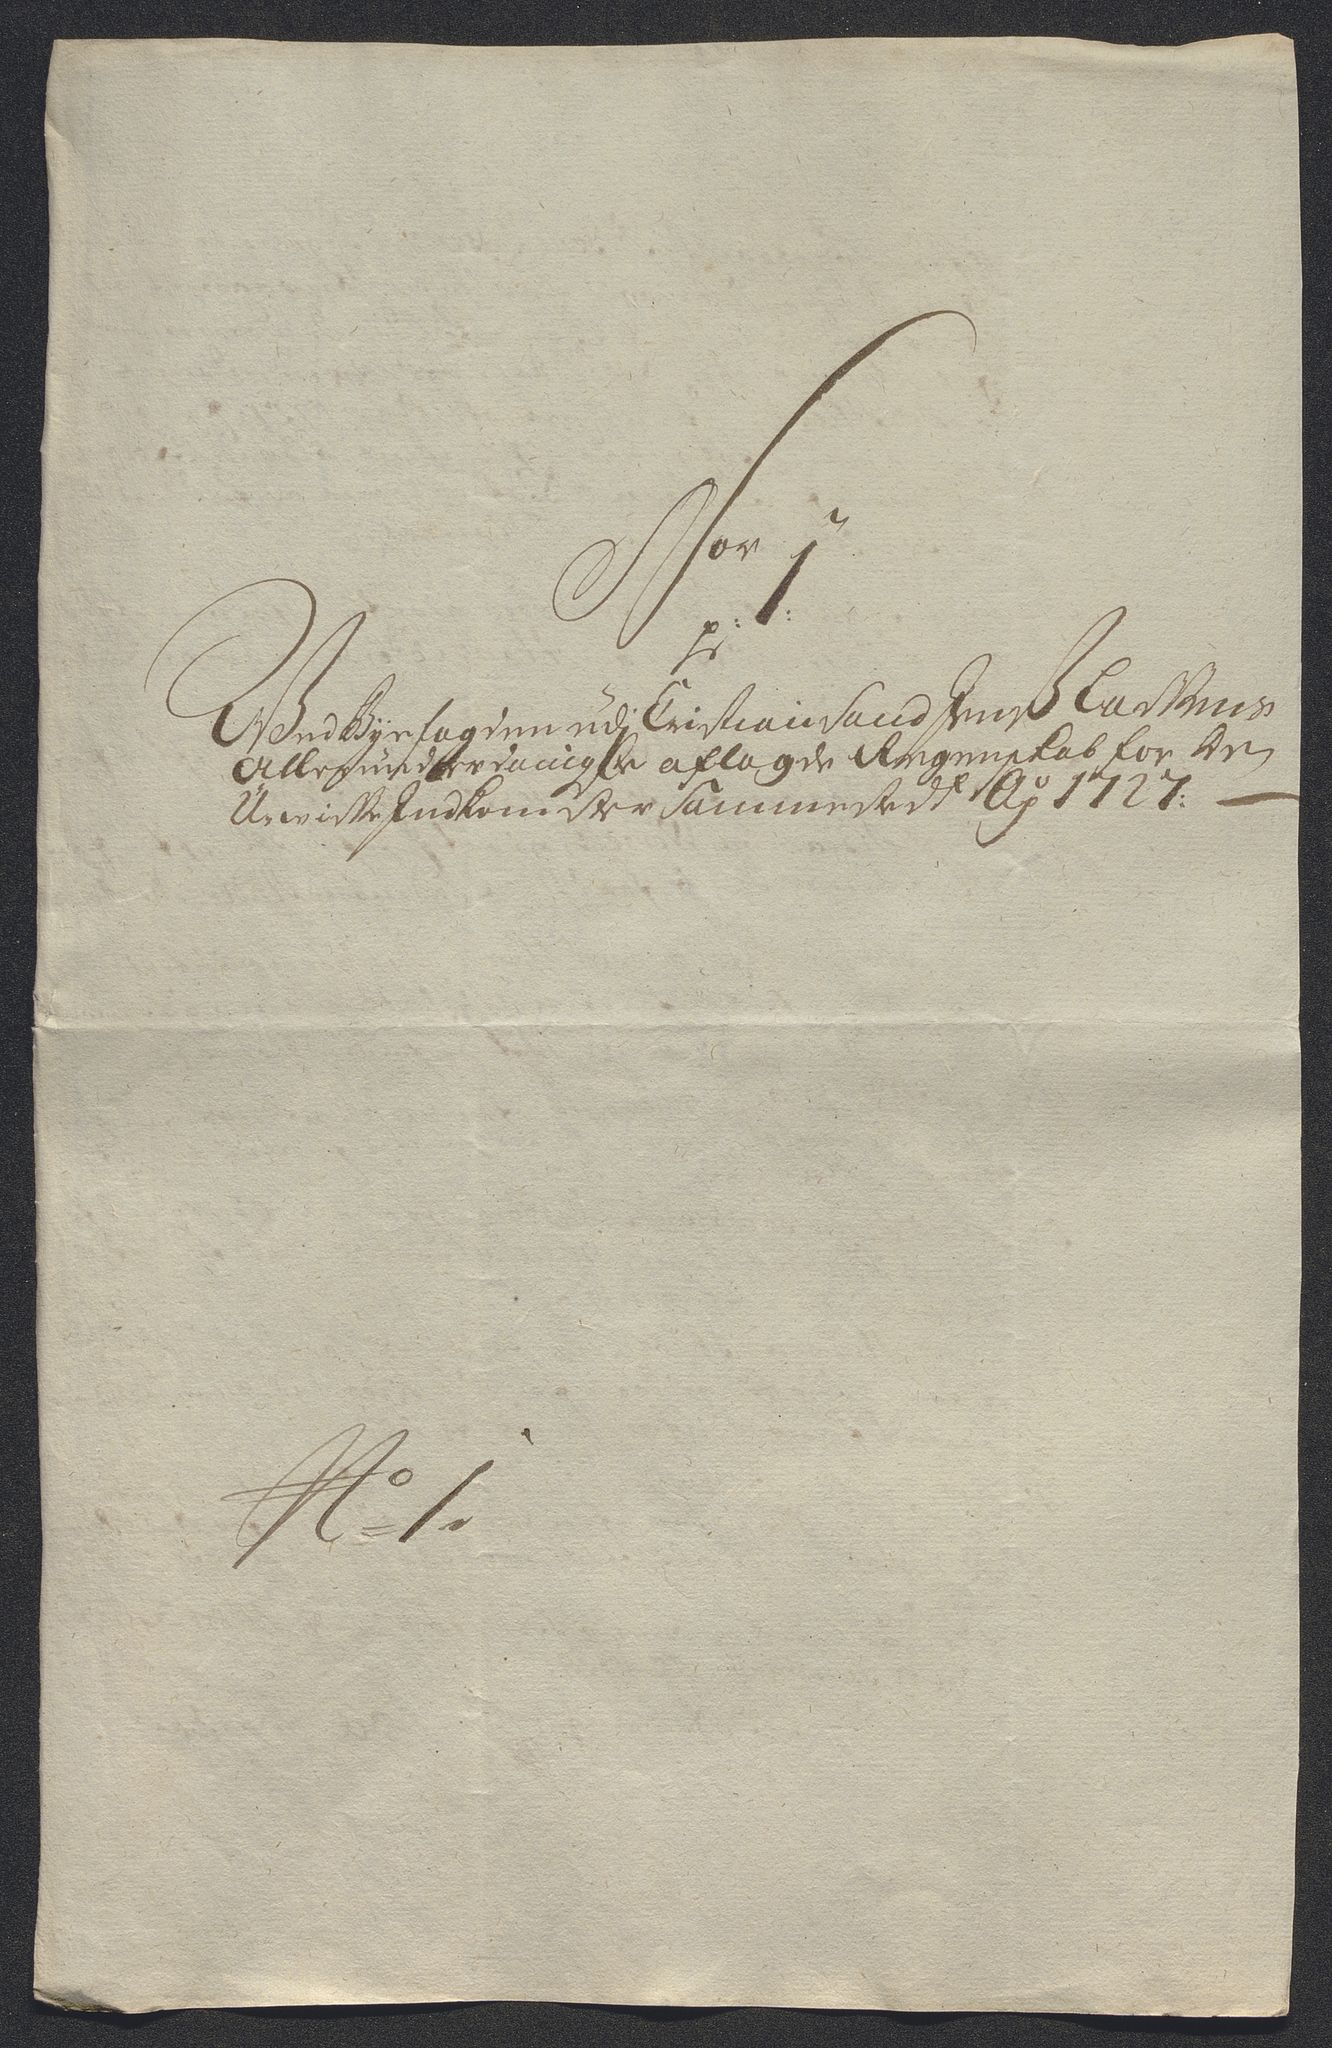 Nor 1
p:
Ved Byefogden udj Cristiansand Jens Classens
Allerunderdanigste aflagde Regenskab for de
U-visse Indkomster sammestedz Ao 1727:
No 1.